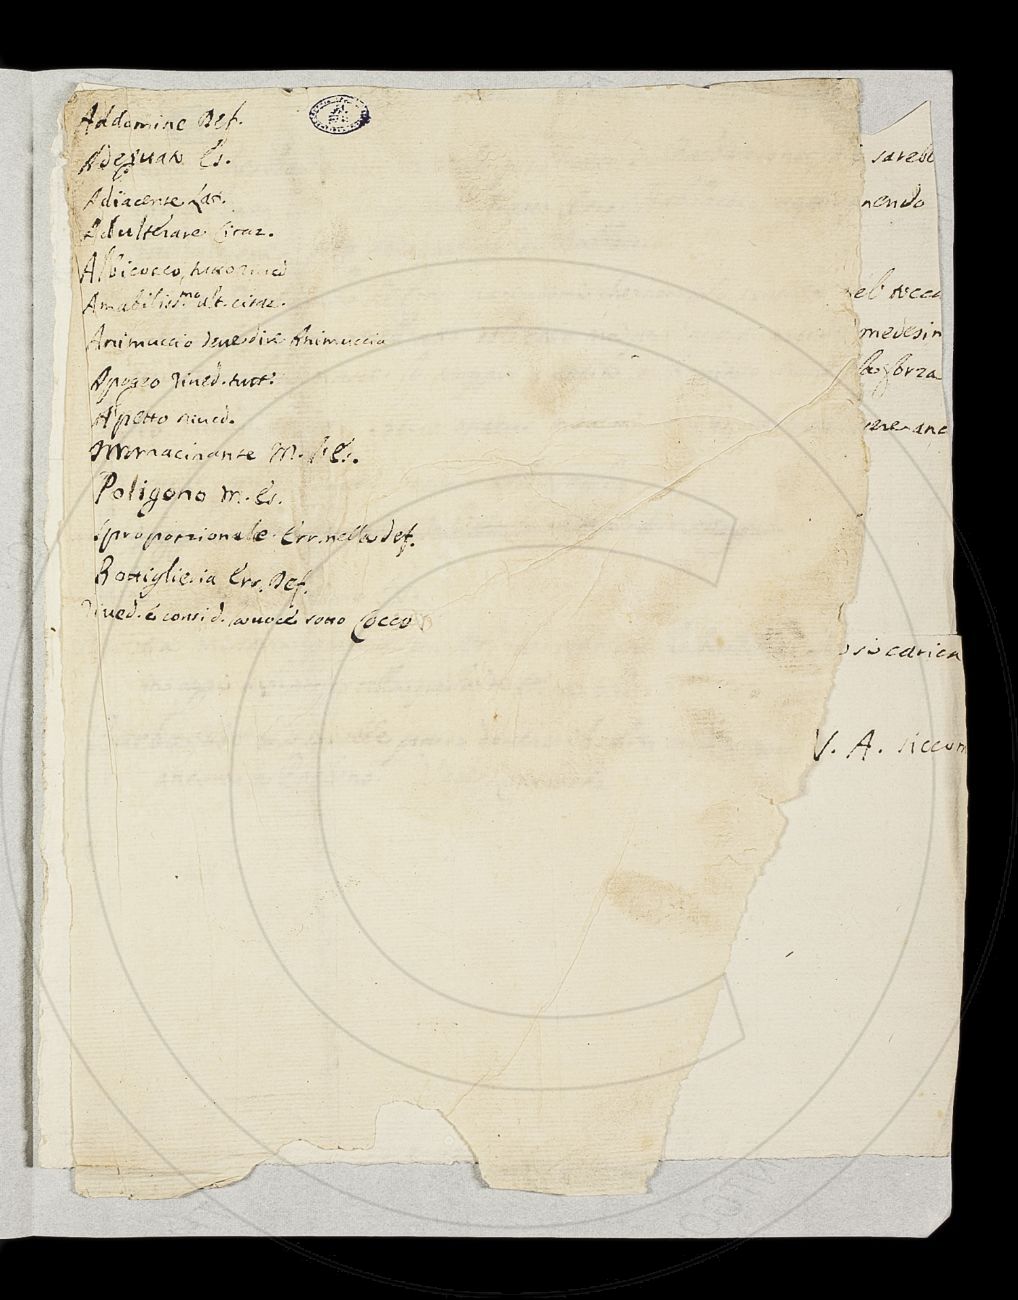 Addomine Def.
Adequato Es.
Adiacente Lat.
Adulterare Citaz.
Albicocco, tutto rived
Amabiliss.mo ult. citaz.
Animuccio deve dire Animuccia
Apogeo rived. tutt.
Aspetto rived.
Mornacinante M. l'Es.
Poligono M. Es.
Sproporzionale Err. nella def.
Bottiglieria Err. Def.
Rived. e consid. la voce sotto Cocco
sareb
nendo
el tocca
medesim
la forza
osì carica
V. A. siccom